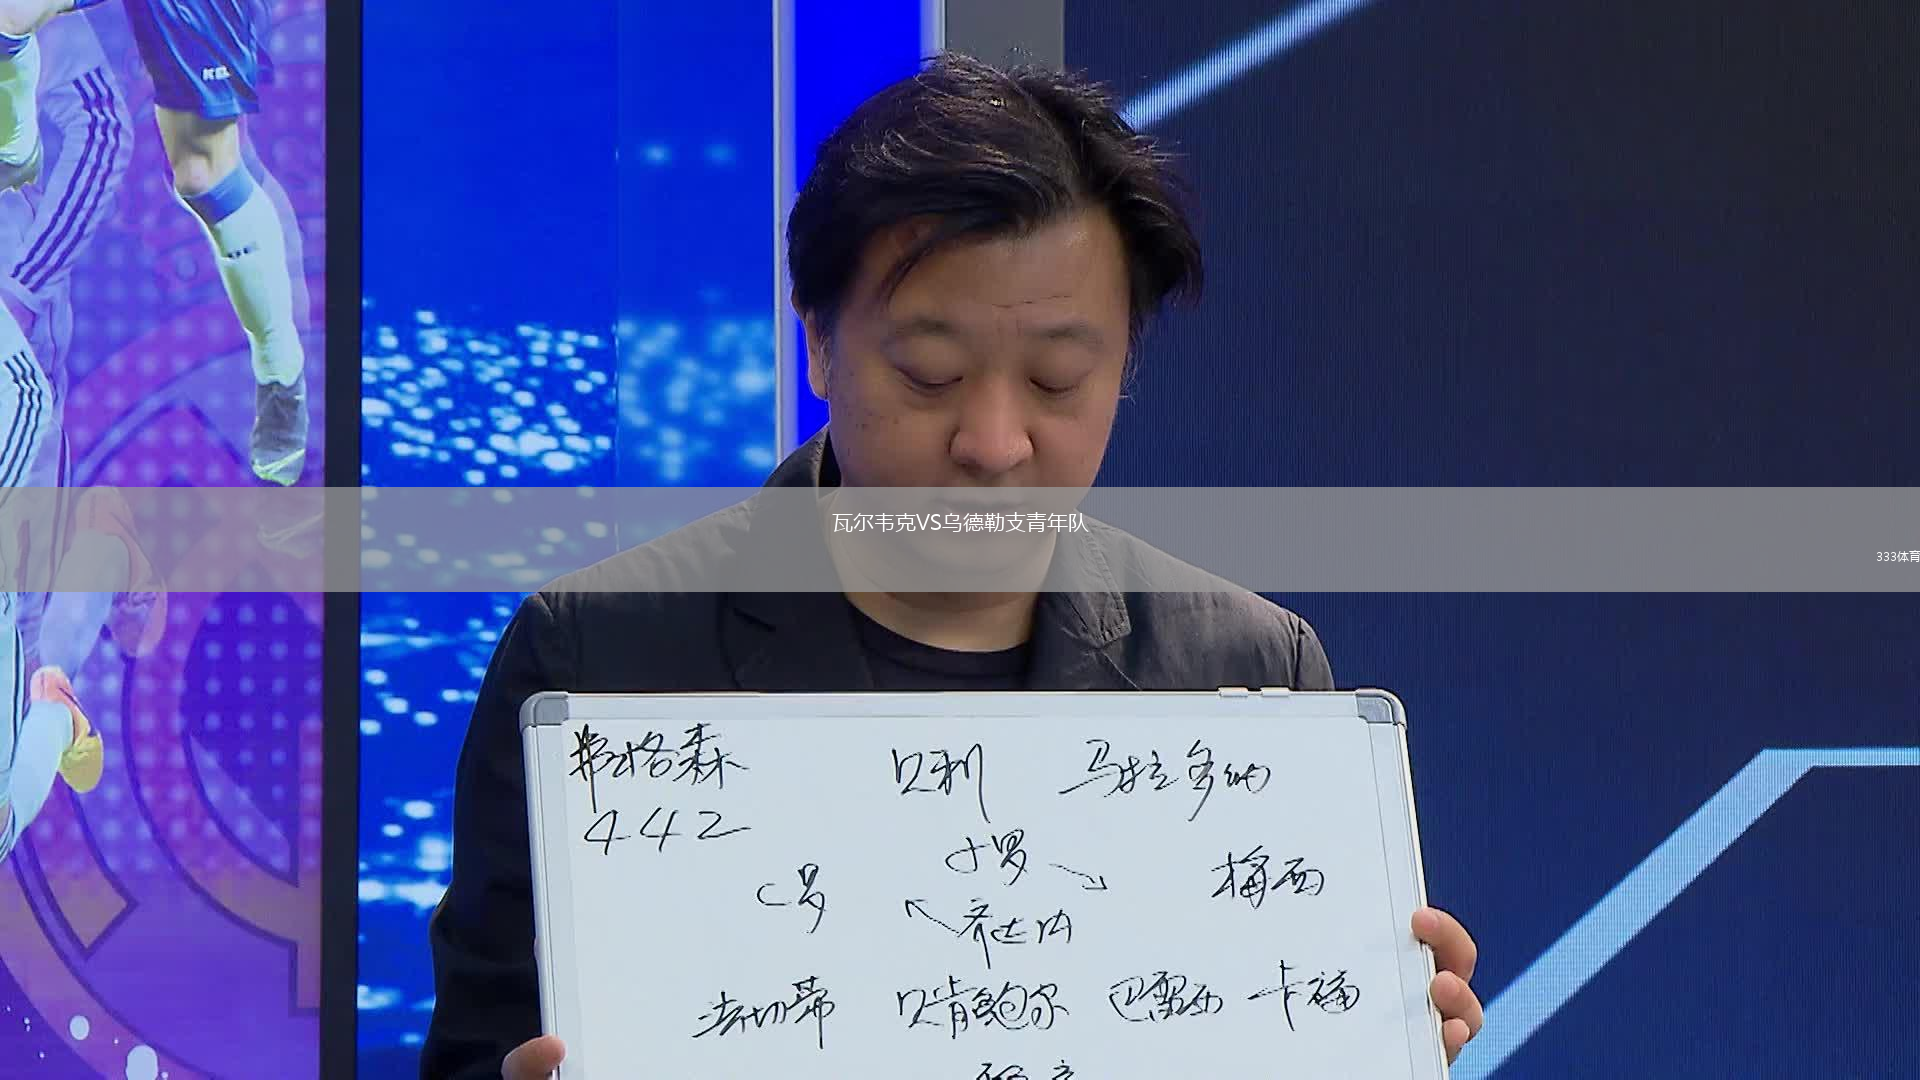 KEL
瓦尔韦克VS乌德勒支青年队
333体育
弗格森 贝利 马拉多纳
442
小罗
C罗 梅西
齐达内
法切蒂 贝肯鲍尔 巴雷西 卡福